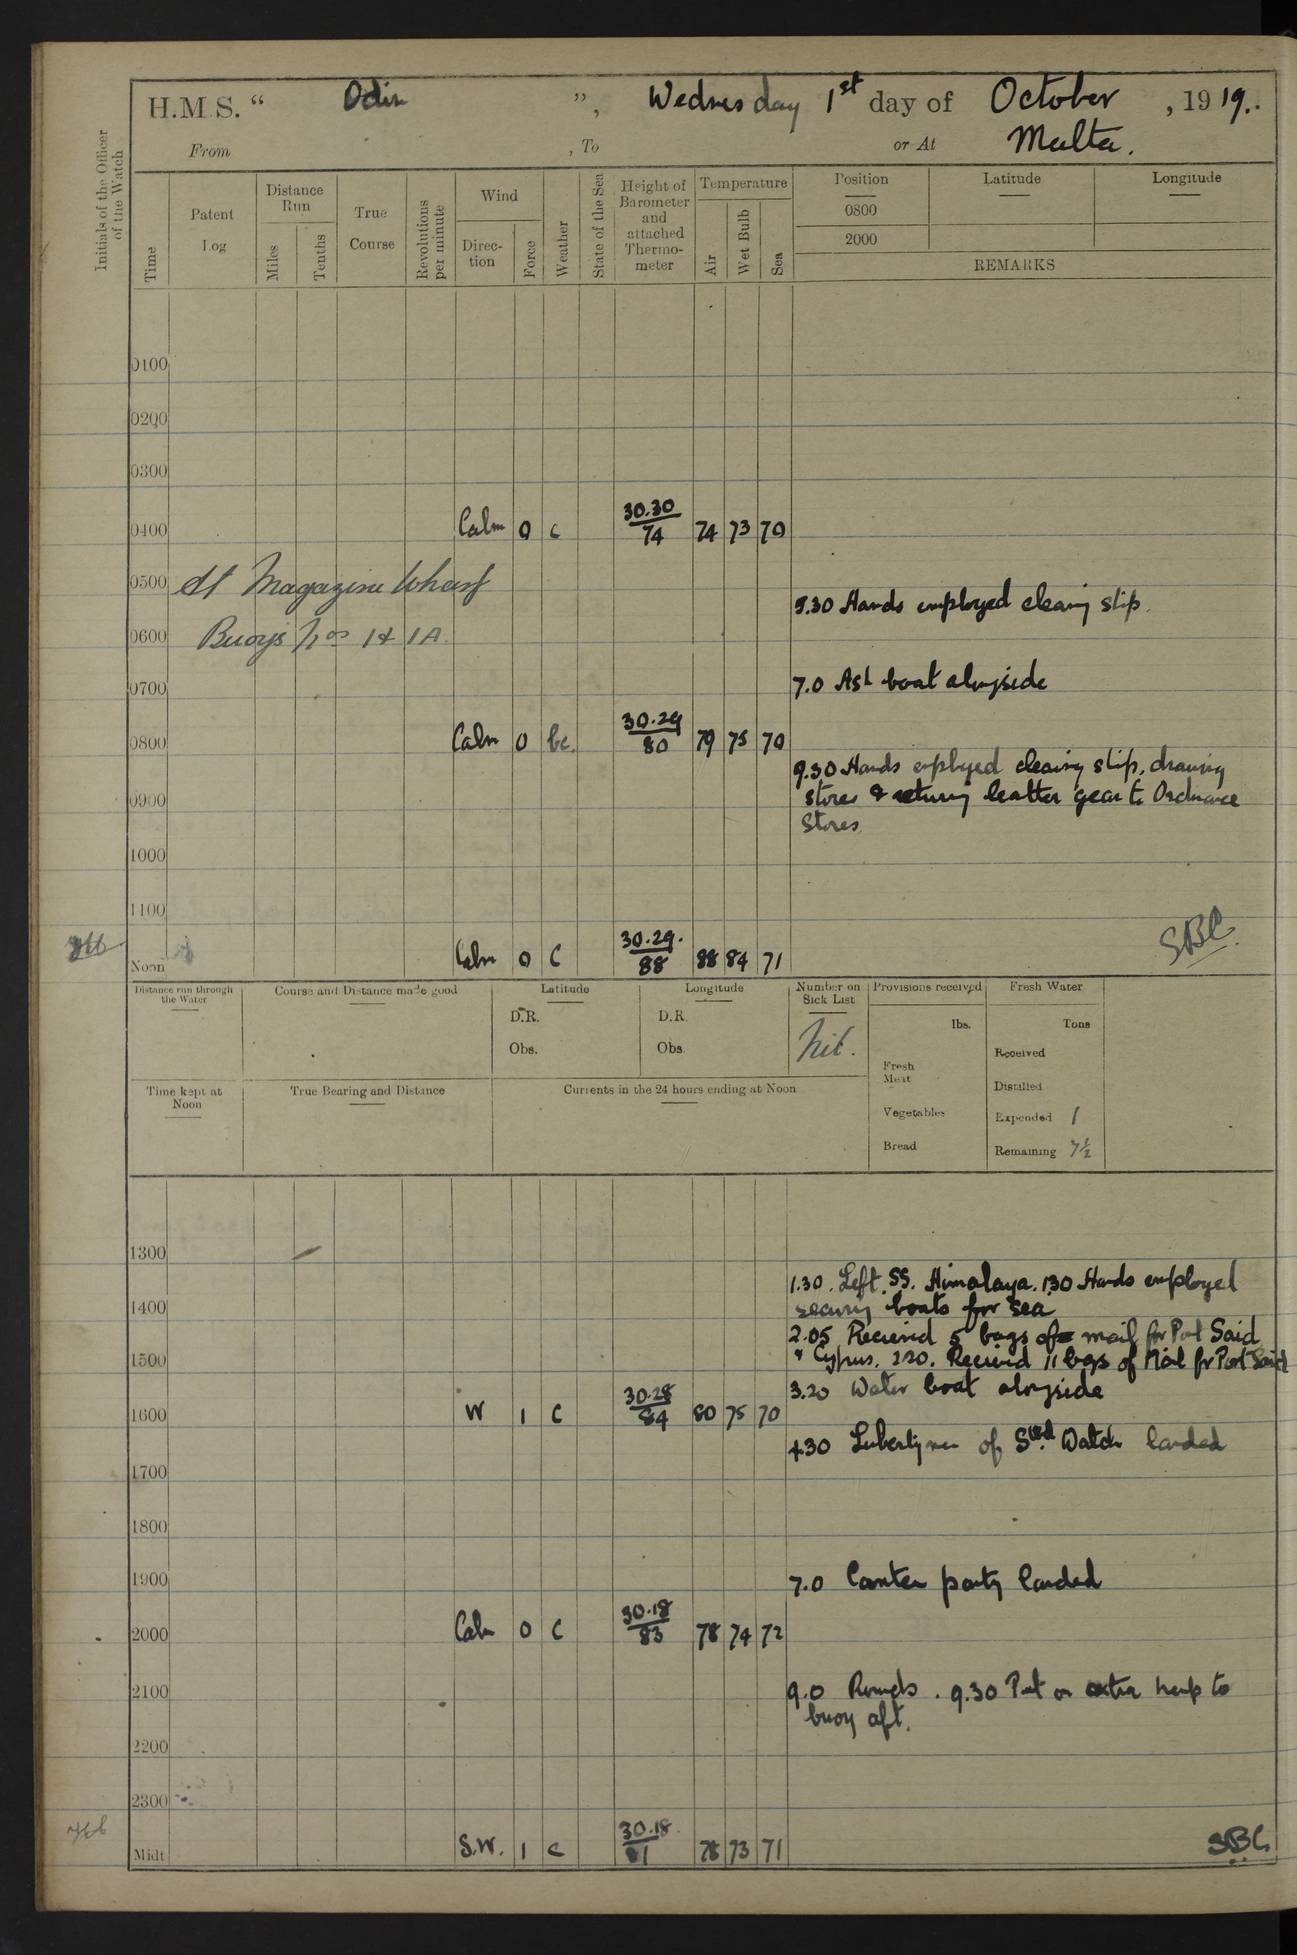 H.M.S. “ Odin ”, Wednesday 1st day of October , 1919.
From , To or At Malta.
Initials of the Officer of the Watch
Time
Patent Log
Distance Run
Miles
Tenths
True Course
Revolutions per minute
Wind
Direc-tion
Force
Weather
State of the Sea
Height of Barometer and attached Thermo-meter
Temperature
Air
Wet Bulb
Sea
Position
Latitude
Longitude
0800
2000
REMARKS
0100
0200
0300
0400 Calm 0 c 30.30/74 74 73 70
0500 At Magazine Wharf
5.30 Hands employed cleaning ship.
0600 Buoys Nos 1 & 1A.
0700 7.0 Ash boat alongside
0800 Calm 0 bc. 30.29/80 79 75 70
9.30 Hands employed cleaning ship, drawing
0900 stores & returning leather gear to Ordnance
Stores.
1000
1100
SBC.
Noon Calm 0 c 30.29./88 88 84 71
Distance run through the Water
Course and Distance made good
Latitude
D.R.
Obs.
Longitude
D.R.
Obs.
Number on Sick List
Nil.
Provisions received
lbs.
Fresh Meat
Vegetables
Bread
Fresh Water
Tons
Received
Distilled
Expended 1
Remaining 7½
Time kept at Noon
True Bearing and Distance
Currents in the 24 hours ending at Noon
1300
1.30. Left. SS. Himalaya. 1.30 Hands employed
1400 securing boats for sea
2.05 Received 5 bags of mail for Port Said
1500 & Cyprus. 2.20. Received 11 bags of Mail for Port Said
3.20 Water boat alongside
1600 W 1 c 30.28/84 80 75 70
4.30 Libertymen of Stbd Watch landed
1700
1800
1900 7.0 Canteen party landed
2000 Calm 0 c 30.18/83 78 74 72
2100 9.0 Rounds. 9.30 Put on extra hemp to
buoy aft.
2200
2300
Midt S.W. 1 c 30.18/81 78 73 71
SBC.